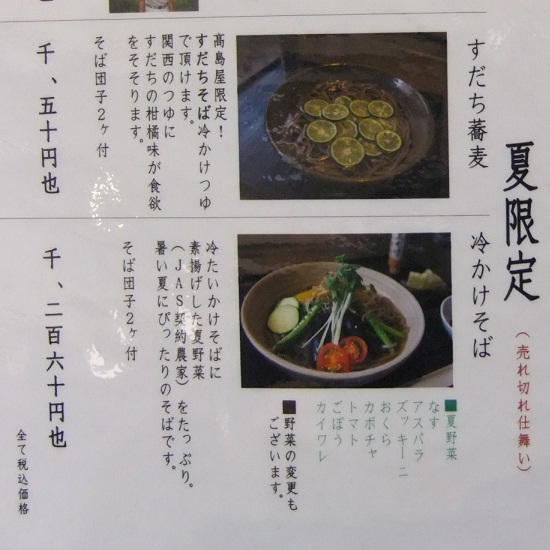 夏限定
(売れ切れ仕舞い)
すだち蕎麦
髙島屋限定！
すだちそば冷かけつゆ
で頂けます。
関西のつゆに
すだちの柑橘味が食欲
をそそります。
そば団子２ヶ付
千、五十円也
冷かけそば
■夏野菜
なす
アスパラ
ズッキーニ
おくら
カボチャ
トマト
ごぼう
カイワレ
■野菜の変更も
ございます。
冷たいかけそばに
素揚げした夏野菜
(JAS契約農家)をたっぷり。
暑い夏にぴったりのそばです。
そば団子２ヶ付
千、二百六十円也
全て税込価格